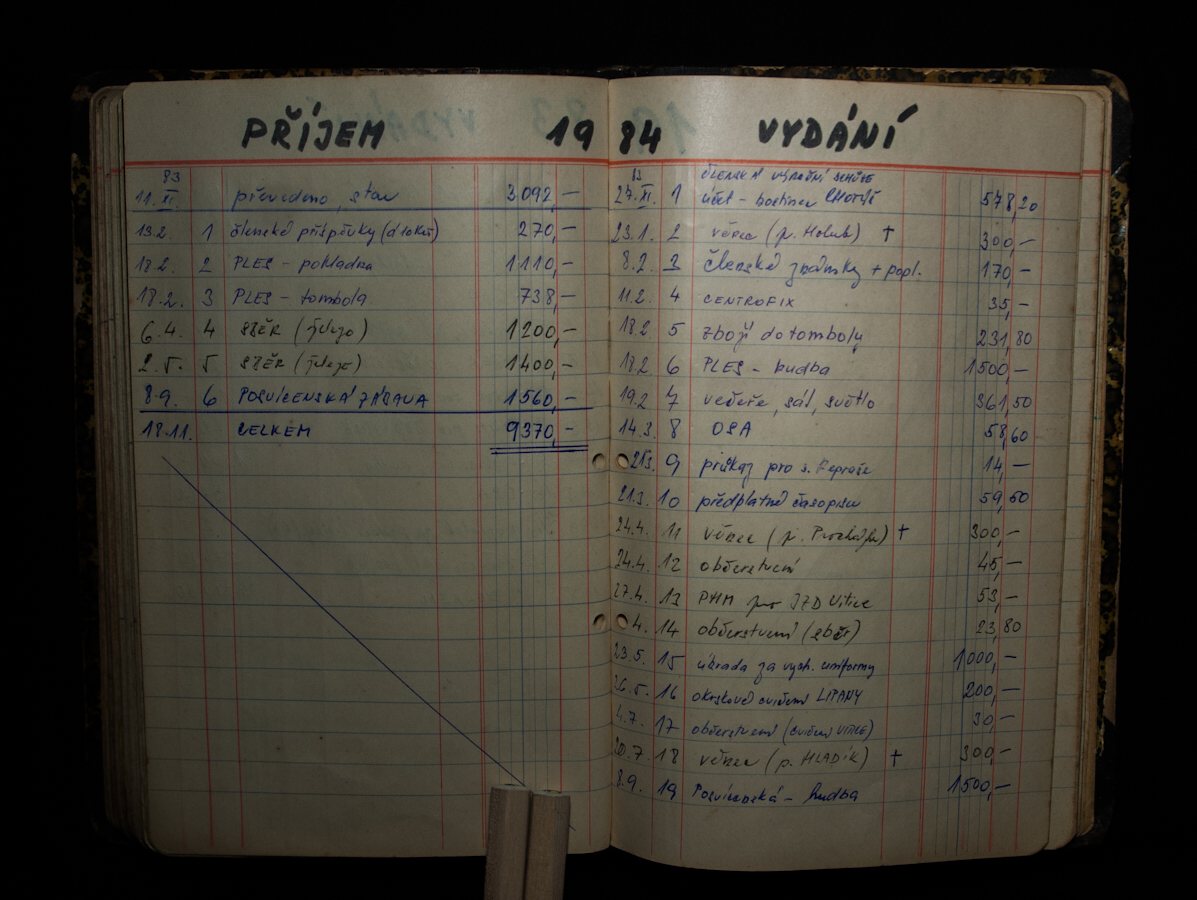 PŘÍJEM 19
83
11. XI. převedeno, stav 3.092,—
13.2. 1 členské příspěvky 270,—
18.2. 2 PLES - pokladna 1110,—
18.2. 3 PLES - tombola 738,—
6.4. 4 SBĚR (železo) 1200,—
2.5. 5 SBĚR (železo) 1400,—
8.9. 6 POSVÍCENSKÁ ZÁBAVA 1560,—
18.11. CELKEM 9370,—
84 VYDÁNÍ
83 ČLENSKÁ VÝROČNÍ SCHŮZE
27. XI. 1 účet - hostinec 578,20
23.1. 2 věnec (p. Holub) † 300,—
8.2. 3 členské známky + popl. 170,—
11.2. 4 CENTROFIX 35,—
18.2 5 zboží do tomboly 231,80
18.2 6 PLES - hudba 1500,—
19.2 7 večeře, sál, světlo 361,50
14.3. 8 OSA 58,60
21.3. 9 průkaz pro s. 14,—
21.3. 10 předplatné časopisu 59,50
24.4. 11 věnec (p. Procházka) † 300,—
24.4. 12 občerstvení 45,—
27.4. 13 PHM pro JZD Vitice 53,—
4. 14 občerstvení (sběr) 23,80
23.5. 15 úhrada za vych. uniformy 1000,—
26.5. 16 okrskové cvičení LIPANY 200,—
4.7. 17 občerstvení (cvičení VITICE) 30,—
20.7 18 věnec (p. HLADÍK) † 300,—
8.9. 19 Posvícenská - hudba 1500,—